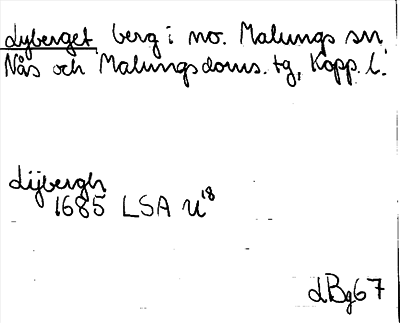 Lyberget berg i no. Malungs sn,
Nås och Malungsdoms. tg, Kopp. l.
Lijbergh
1685 LSA U18
LBg67